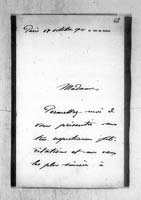 68
Paris 27 octobre 900
Madame,
Permettez-moi de
vous présenter mes
très respectueuses féli-
citations et mes vœux
les plus sincères à